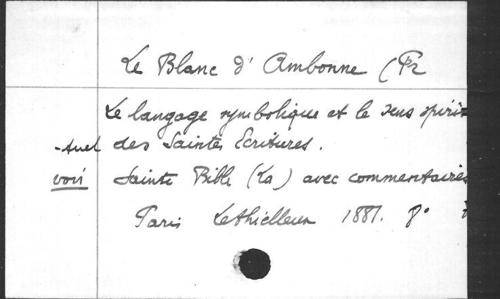 Le Blanc d'Ambonne (Pr
Le langage symbolique et le sens spiri-
-tuel des Saintes Ecritures.
voir Sainte Bible (La) avec commentaires
Paris Lethielleux 1881. 8°